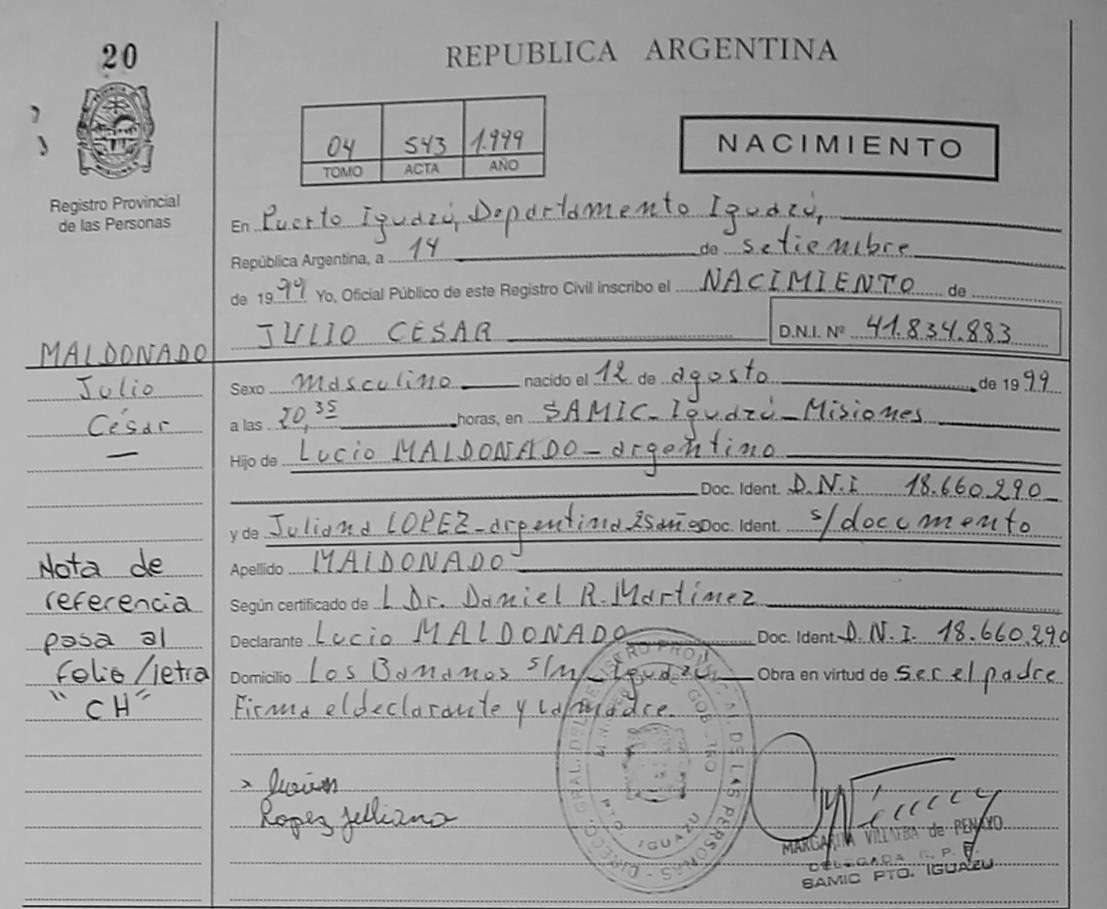 20
REPUBLICA ARGENTINA
04 543 1.999
TOMO ACTA AÑO
NACIMIENTO
Registro Provincial
de las Personas
En Puerto Iguazú, Departamento Iguazú,
República Argentina, a 14 de setiembre
de 1999 Yo, Oficial Público de este Registro Civil inscribo el NACIMIENTO de
JULIO CESAR D.N.I. Nº 41.834.883
MALDONADO
Julio
César
Sexo masculino nacido el 12 de agosto de 1999
a las 20,35 horas, en SAMIC - Iguazú - Misiones
Hijo de Lucio MALDONADO - argentino
Doc. Ident. D.N.I 18.660.290
y de Juliana LOPEZ - argentina 25 años Doc. Ident. s/documento
Apellido MALDONADO
Según certificado de L Dr. Daniel R. Martínez
Declarante Lucio MALDONADO Doc. Ident. D.N.I. 18.660.290
Domicilio Los Bananos s/n - Iguazú Obra en virtud de ser el padre
Firma el declarante y la madre.
Nota de
referencia
pasa al
folio/letra
"CH"
Lopez Julliana
DIRECC. GRAL. DEL REGISTRO PROVINCIAL DE LAS PERSONAS
MINISTERIO DE GOBIERNO
PTO. IGUAZU
MARGARITA VILLALBA de PENAYO
DELEGADA R. P. P.
SAMIC PTO. IGUAZU